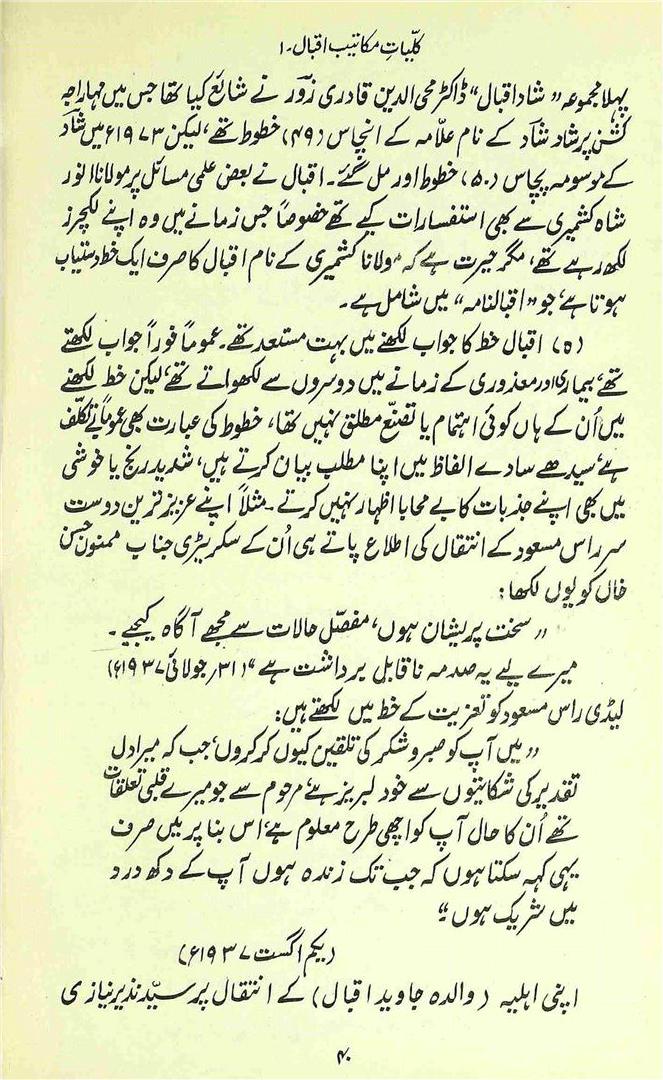 کلّیاتِ مکاتیب اقبال۔۱
پہلا مجموعہ ”شاد اقبال“ ڈاکٹر محی الدین قادری زورؔ نے شائع کیا تھا جس میں مہاراجہ
کشن پرشاد شادؔ کے نام علّامہ کے انچاس (۴۹) خطوط تھے، لیکن ۱۹۷۳ء میں شادؔ
کے موسومہ پچاس (۵۰) خطوط اور مل گئے۔ اقبال نے بعض علمی مسائل پر مولانا انور
شاہ کشمیری سے بھی استفسارات کیے تھے خصوصاً جس زمانے میں وہ اپنے لکچرز
لکھ رہے تھے، مگر حیرت ہے کہ مولانا کشمیری کے نام اقبال کا صرف ایک خط دستیاب
ہوتا ہے، جو ”اقبالنامہ“ میں شامل ہے۔
(۵) اقبال خط کا جواب لکھنے میں بہت مستعد تھے۔ عموماً فوراً جواب لکھتے
تھے، بیماری اور معذوری کے زمانے میں دوسروں سے لکھواتے تھے، لیکن خط لکھنے
میں اُن کے ہاں کوئی اہتمام یا تصنّع مطلق نہیں تھا، خطوط کی عبارت بھی عموماً بے تکلّف
ہے، سیدھے سادے الفاظ میں اپنا مطلب بیان کرتے ہیں، شدید رنج یا خوشی
میں بھی اپنے جذبات کا بے محابا اظہار نہیں کرتے۔ مثلاً اپنے عزیز ترین دوست
سر راس مسعود کے انتقال کی اطلاع پاتے ہی اُن کے سکریٹری جناب ممنون حسن
خاں کو یوں لکھا:
”سخت پریشان ہوں، مفصّل حالات سے مجھے آگاہ کیجیے۔
میرے لیے یہ صدمہ ناقابلِ برداشت ہے“ (۳۱؍ جولائی ۱۹۳۷ء)
لیڈی راس مسعود کو تعزیت کے خط میں لکھتے ہیں:
”میں آپ کو صبر و شکر کی تلقین کیوں کر کروں، جب کہ میرا دل
تقدیر کی شکایتوں سے خود لبریز ہے، مرحوم سے جو میرے قلبی تعلقات
تھے اُن کا حال آپ کو اچھی طرح معلوم ہے، اس بنا پر میں صرف
یہی کہہ سکتا ہوں کہ جب تک زندہ ہوں آپ کے دکھ درد
میں شریک ہوں۔“
(یکم اگست ۱۹۳۷ء)
اپنی اہلیہ (والدہ جاوید اقبال) کے انتقال پر سیّد نذیر نیازی
۴۰